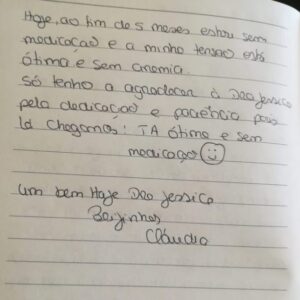 Hoje, ao fim de 5 meses estou sem
medicação e a minha tensao está
ótima e sem anemia.
só tenho a agradecer à Dra Jessica
pela dedicação e paciência pois
lá chegamos: TA ótima e sem
medicação
um bem Haje Dra Jessica
Beijinhos
Cláudia